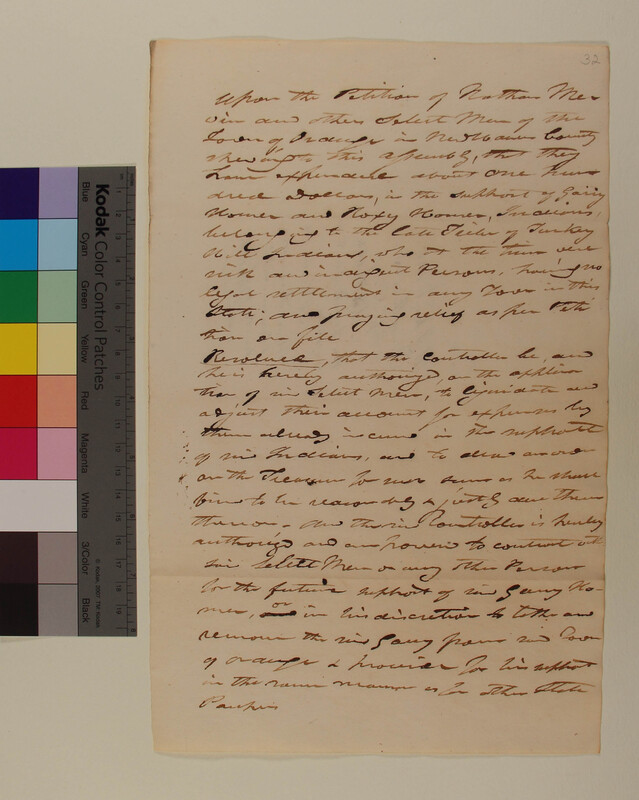 32
Upon the Petition of Nathan Mer-
vin and others Select Men of the
Town of Orange in New Haven County
shewing to this Assembly, that they
have expended about one hun
dred Dollars, in the support of Garry
Homer and Roxy Homer, Indians,
belonging to the late Tribe of Turkey
Hill Indians, who at the time were
sick and indigent Persons, having no
legal settlement in any Town in this
State; and praying relief as per Peti
tion on file
Resolved, that the Controller be, and
he is hereby authorized, on the applica
tion of said Select Men, to liquidate and
adjust their account for expenses by
them already incured in the support
of said Indians, and to draw an order
on the Treasurer for such sum as he shall
find to be reasonably & justly due them
thereon. And the said Controller is hereby
authorized and empowered to contract with
said Select Men or any other Person
for the future support of said Garry Ho
mer, or in his discretion to take and
remove the said Garry from said Town
of Orange & provide for his support
in the same manner as for other State
Paupers
Kodak Color Control Patches
Blue
Cyan
Green
Yellow
Red
Magenta
White
3/Color
Black